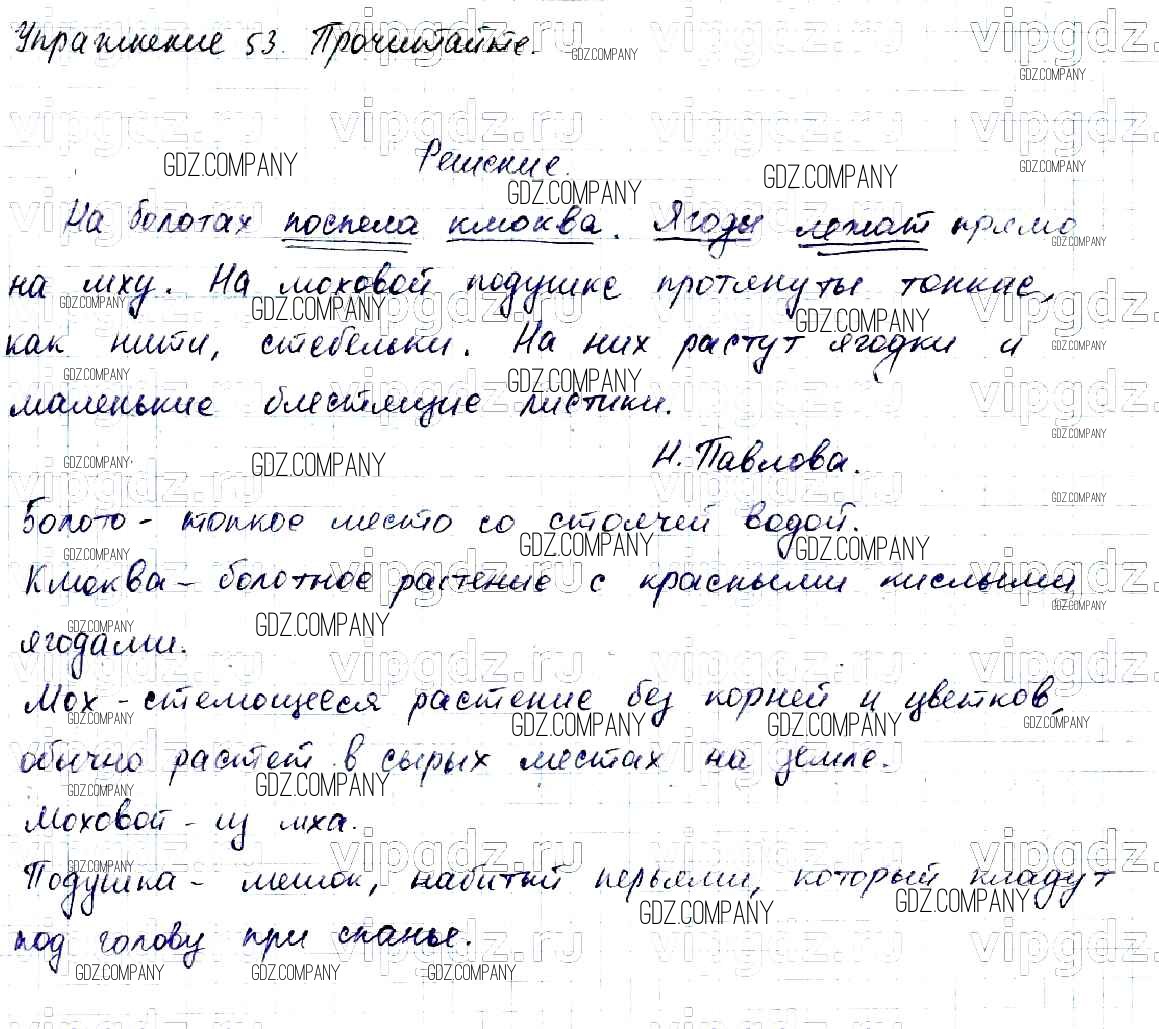 Упражнение 53. Прочитайте.
Решение.
На болотах поспела клюква. Ягоды лежат прямо
на мху. На моховой подушке протянуты тонкие,
как нити, стебельки. На них растут ягодки и
маленькие блестящие листики.
Н. Павлова.
Болото - топкое место со стоячей водой.
Клюква - болотное растение с красными кислыми
ягодами.
Мох - стелющееся растение без корней и цветков,
обычно растет в сырых местах на земле.
Моховой - из мха.
Подушка - мешок, набитый перьями, который кладут
под голову при спанье.